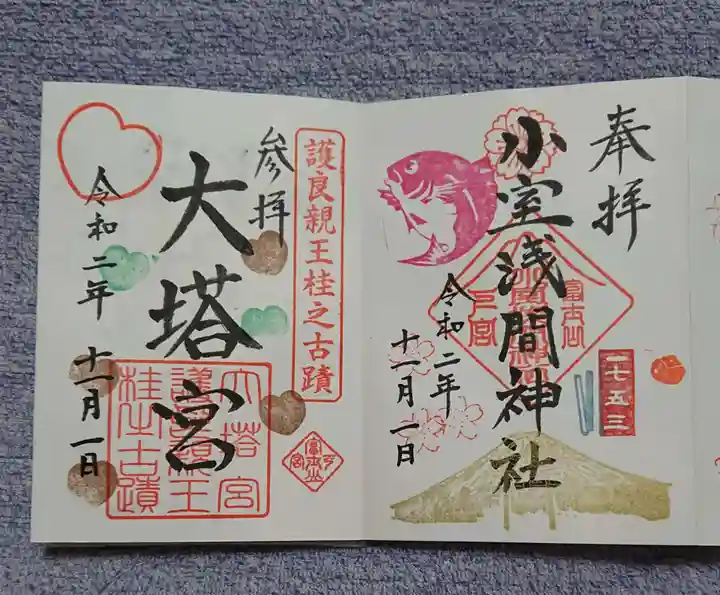 奉拝
小室浅間神社
富士山
下宮
七五三
令和二年
十一月一日
護良親王桂之古蹟
参拝
大塔宮
大塔宮
護良親王
桂之古蹟
富士山
下宮
令和二年
十一月一日